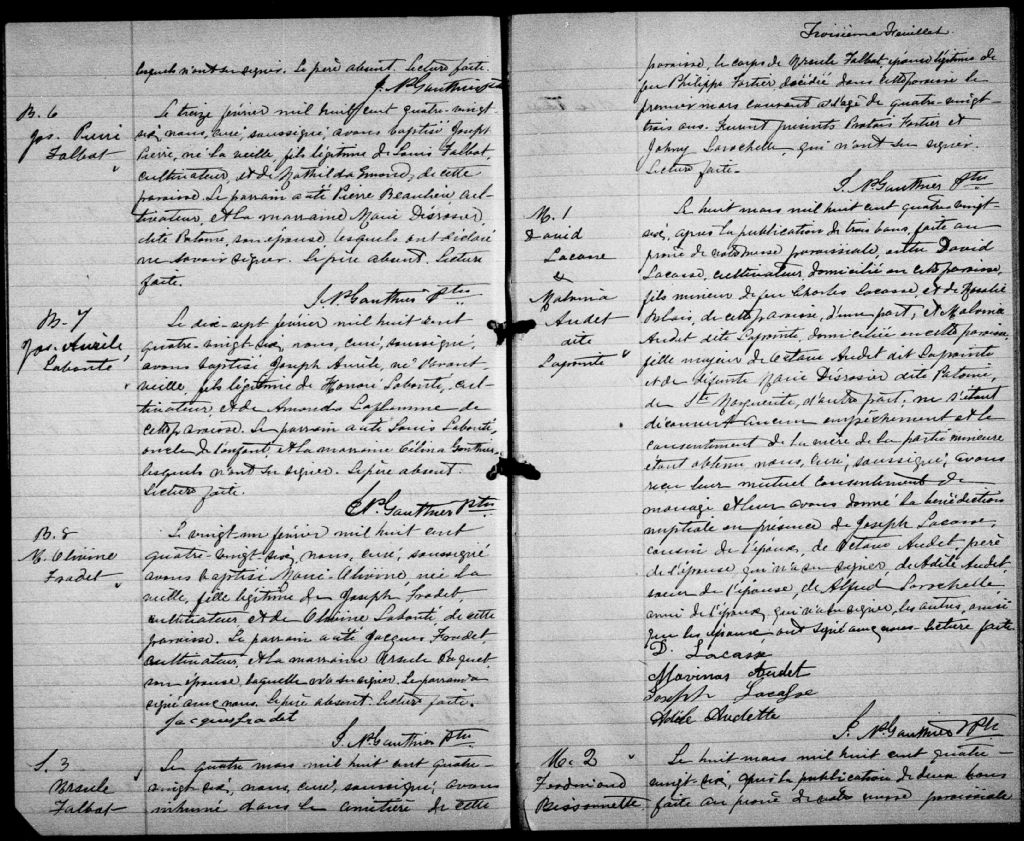 lesquels n'ont su signer. Le père absent. Lecture faite.
J. N. Gauthier Ptre
B. 6
Jos. Pierre
Talbot
Le treize février mil huit cent quatre-vingt
six, nous, curé, soussigné, avons baptisé Joseph
Pierre, né la veille, fils légitime de Louis Talbot,
cultivateur, et de Mathilda Emond, de cette
paroisse. Le parrain a été Pierre Beaulieu, cul-
tivateur, et la marraine Marie Désrosier
dite Patome, son épouse, lesquels ont déclaré
ne savoir signer. Le père absent. Lecture
faite.
J. N. Gauthier Ptre
B-7
Jos. Aurèle
Labonté
Le dix-sept février mil huit cent
quatre-vingt six, nous, curé, soussigné,
avons baptisé Joseph Aurèle, né l'avant
veille, fils légitime de Honoré Labonté, cul-
tivateur et de Amanda Laflamme de
cette paroisse. Le parrain a été Louis Labonté,
oncle de l'enfant, et la marraine Célina Gonthier,
lesquels n'ont su signer. Le père absent.
Lecture faite.
J. N. Gauthier Ptre
B. 8
M. Alvine
Fradet
Le vingt un février mil huit cent
quatre-vingt six, nous, curé, soussigné
avons baptisé Marie-Alvine, née la
veille, fille légitime de Joseph Fradet
cultivateur et de Olivine Labonté, de cette
paroisse. Le parrain a été Jacques Fradet
cultivateur, et la marraine Ursule Paquet
son épouse, laquelle n'a su signer. Le parrain a
signé avec nous. Le père absent. Lecture faite.
Jacques fradet
J. N. Gauthier Ptre
S. 3
Ursule
Talbot
Le quatre mars mil huit cent quatre-
vingt-six, nous, curé, soussigné, avons
inhumé dans le cimetière de cette
Troisième Feuillet.
paroisse, le corps de Ursule Talbot épouse légitime de
feu Philippe Fortier décédée dans cette paroisse le
premier mars courant et âgée de quatre-vingt-
trois ans. Furent présents Protais Fortier et
Johny Larochelle, qui n'ont su signer.
Lecture faite.
J. N. Gauthier Ptre
M. 1
David
Lacasse
&
Malvina
Audet
dite
Lapointe
Le huit mars mil huit cent quatre-vingt-
six, après la publication de trois bans, faite au
prône de notre messe paroissiale, entre David
Lacasse, cultivateur, domicilié en cette paroisse,
fils mineur de feu Charles Lacasse, et de Rosalie
Blais, de cette paroisse, d'une part, et Malvina
Audet dite Lapointe, domiciliée en cette paroisse,
fille majeure de Octave Audet dit Lapointe
et de défunte Marie Désrosier dite Patome,
de Ste Marguerite, d'autre part, ne s'étant
découvert aucun empêchement et le
consentement de la mère de la partie mineure
étant obtenu nous, curé, soussigné, avons
reçu leur mutuel consentement de
mariage et leur avons donné la bénédiction
nuptiale en présence de Joseph Lacasse,
cousin de l'époux, de Octave Audet père
de l'épouse, qui n'a su signer, de Adèle Audet,
soeur de l'épouse, de Alfred Larochelle,
ami de l'époux, qui n'a su signer, les autres, ainsi
que les époux ont signé avec nous. Lecture faite.
D. Lacasse
Mavinas Audet
Joseph Lacasse
Adèle Audette
J. N. Gauthier Ptre
M. 2
Ferdinand
Bissonnette
Le huit mars mil huit cent quatre-
vingt-six, après la publication de deux bans
faite au prône de notre messe paroissiale